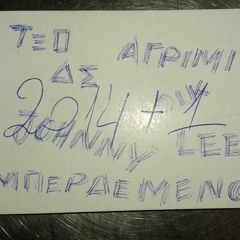 ΤΕΟ ΑΓΡΙΜΙ
ΔΕ
2014+1
JOHNNY LEE
ΜΠΕΡΔΕΜΕΝΟ